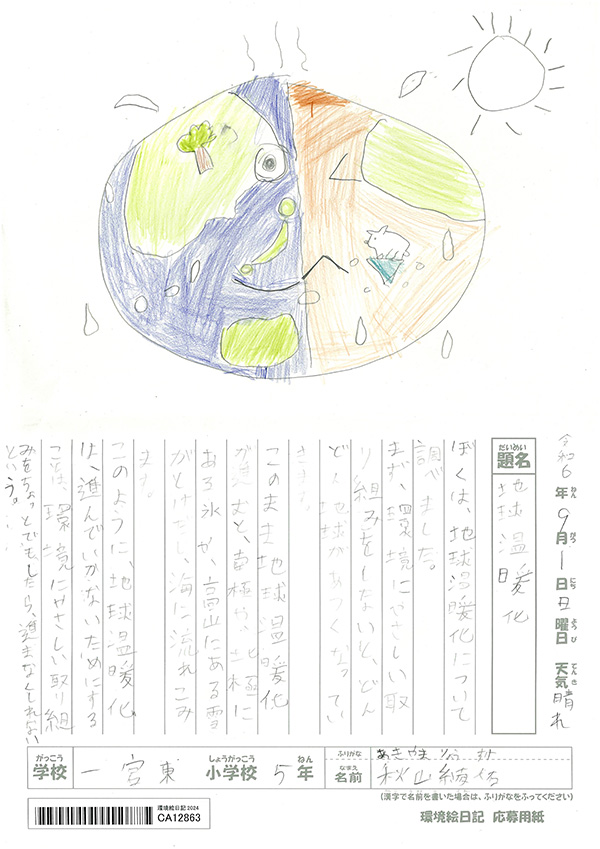 令和6年9月1日日曜日 天気晴れ
ねん がつ にち ようび てんき
だいめい
題名
地球温暖化
ぼくは、地球温暖化について
調べました。
まず、環境にやさしい取
り組みをしないと、どん
どん地球があつくなってい
きます。
このまま地球温暖化
が進むと、南極や、北極に
ある氷や、高山にある雪
がとけだし、海に流れこみ
ます。
このように、地球温暖化
は、進んでいかないためにする
ことは、環境にやさしい取り組
みをちょっとでもしたら、進まなくしれない
という。
がっこう
学校
一宮東
しょうがっこう
小学校
5
ねん
年
ふりがな
あきやま
なまえ
名前
秋山
(漢字で名前を書いた場合は、ふりがなをふってください)
環境絵日記2024
CA12863
環境絵日記 応募用紙